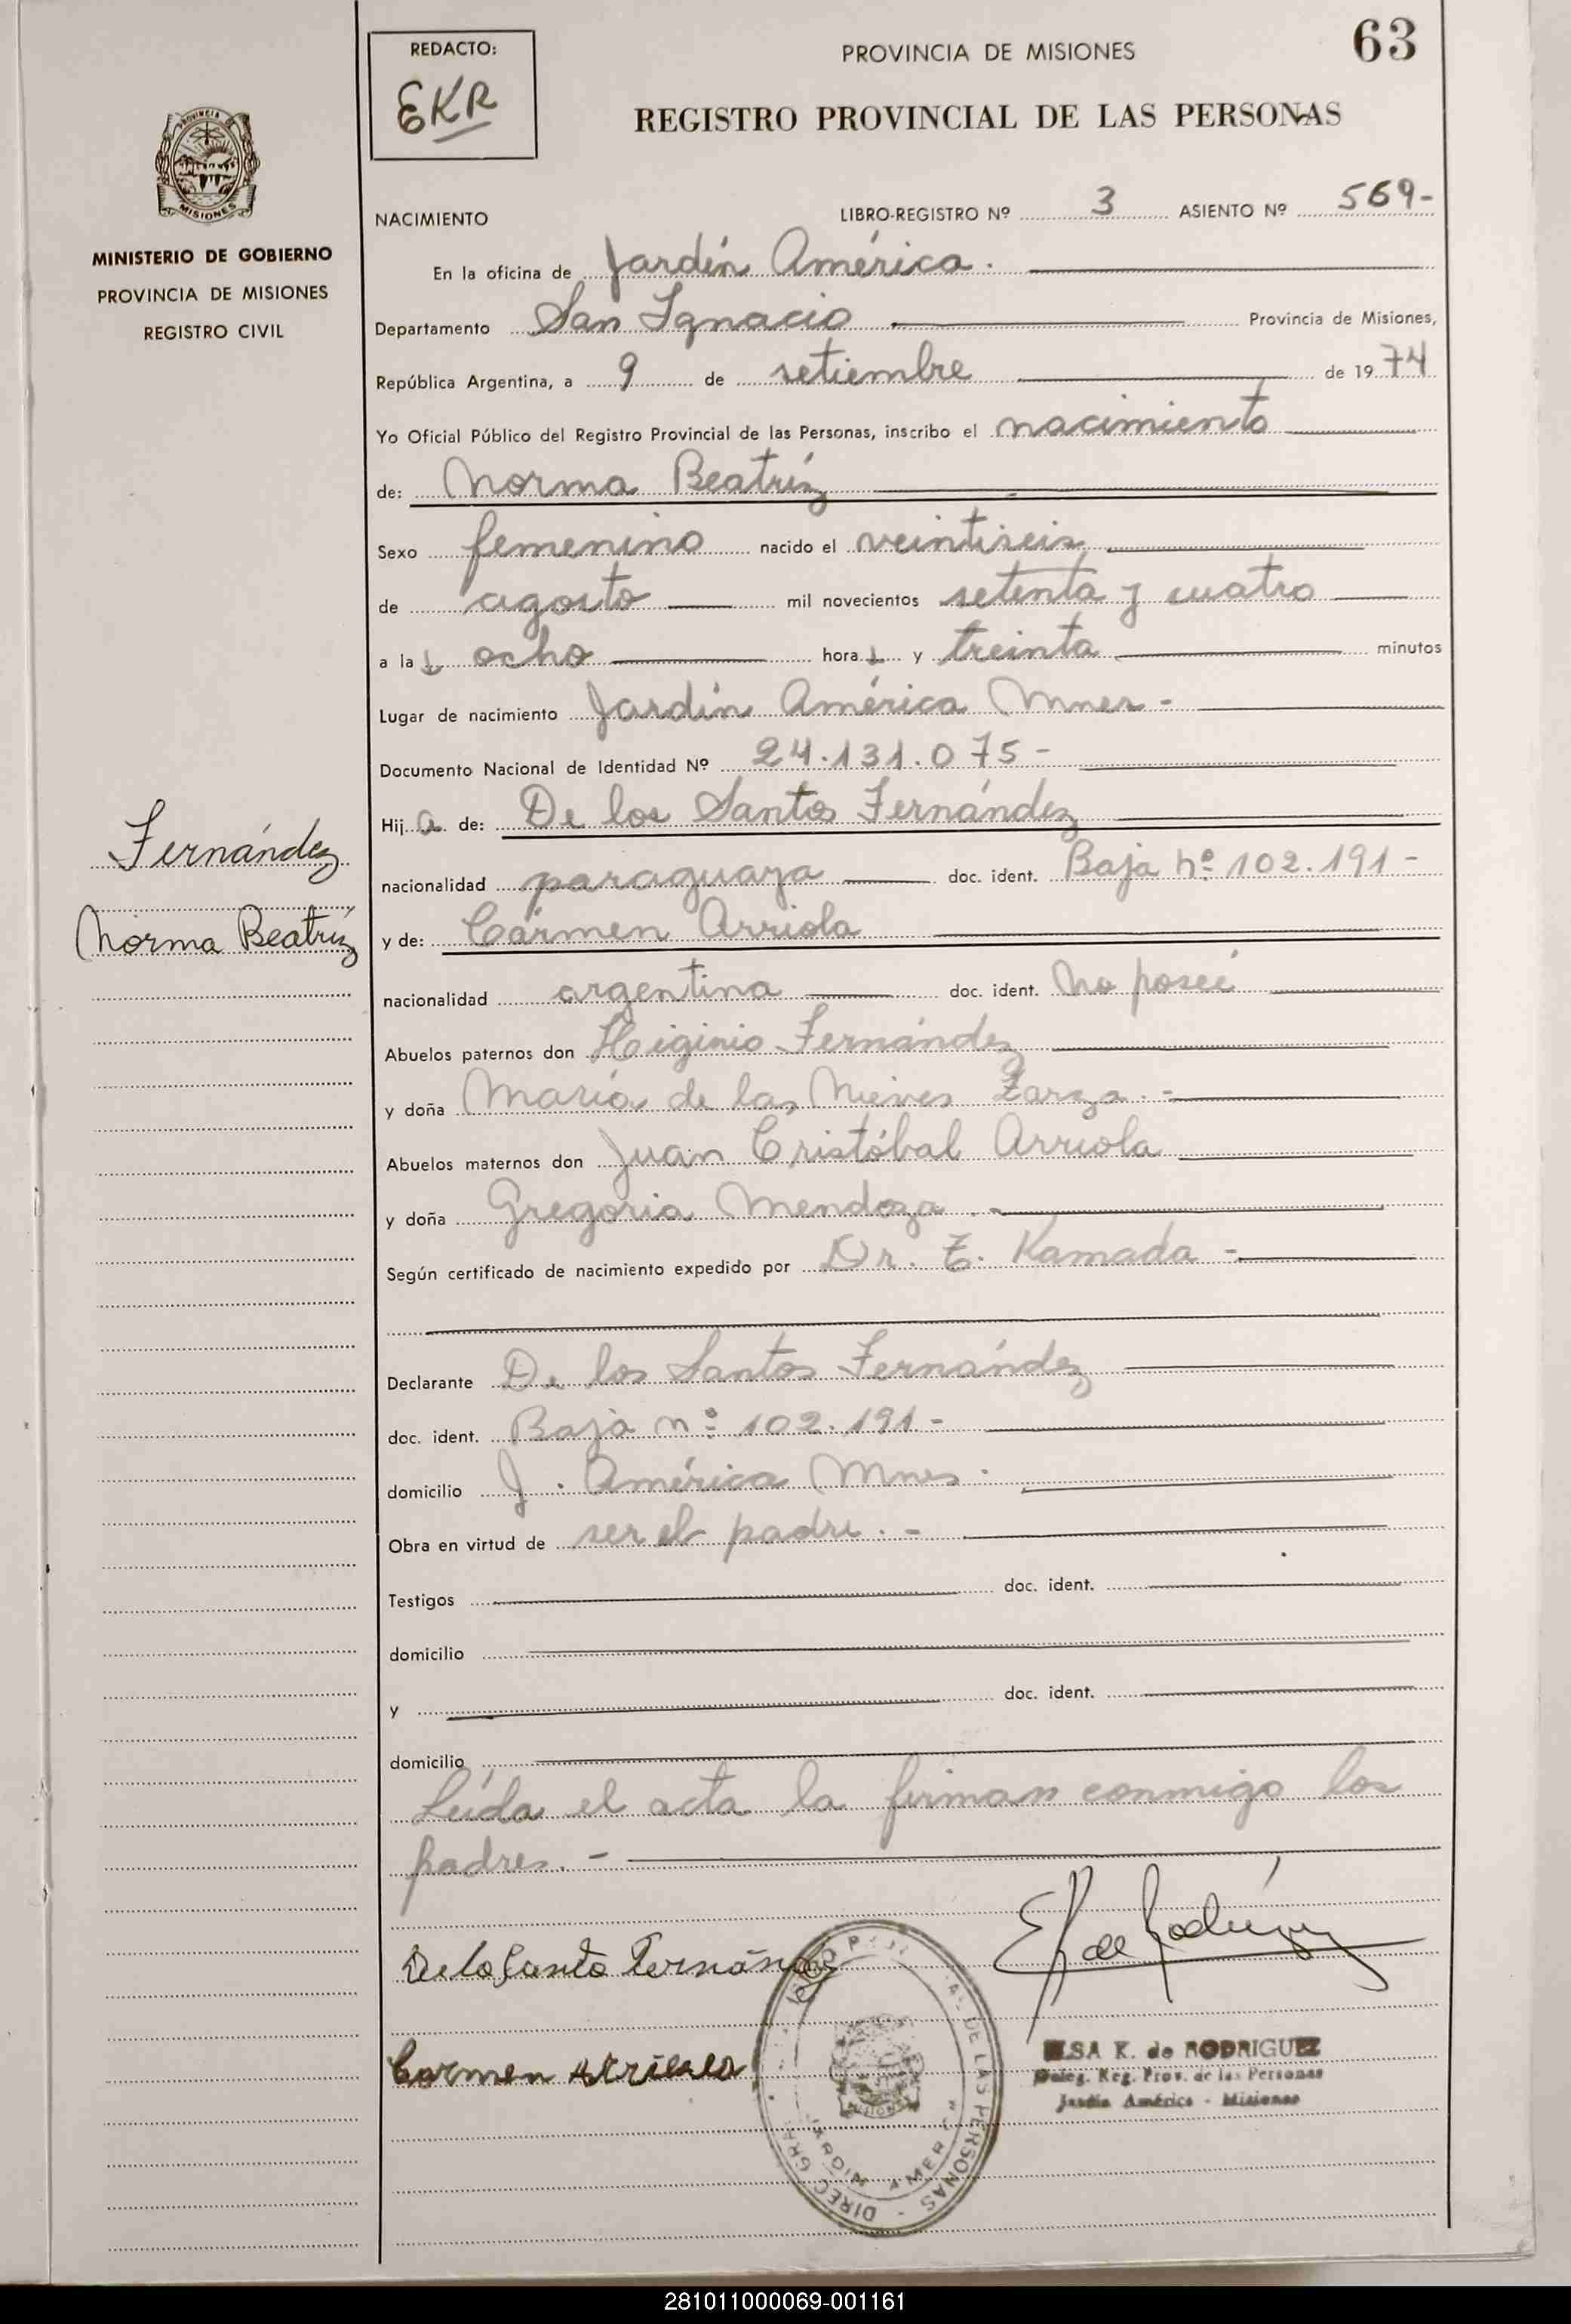 63
REDACTO:
EKR
PROVINCIA DE MISIONES
REGISTRO PROVINCIAL DE LAS PERSONAS
MISIONES
MINISTERIO DE GOBIERNO
PROVINCIA DE MISIONES
REGISTRO CIVIL
NACIMIENTO LIBRO-REGISTRO Nº 3 ASIENTO Nº 569-
En la oficina de Jardín América.
Departamento San Ignacio Provincia de Misiones,
República Argentina, a 9 de setiembre de 1974
Yo Oficial Público del Registro Provincial de las Personas, inscribo el nacimiento
de: Norma Beatríz
Sexo femenino nacido el veintiseis
de agosto mil novecientos setenta y cuatro
a las ocho horas y treinta minutos
Lugar de nacimiento Jardín América Mnes -
Documento Nacional de Identidad Nº 24.131.075-
Hija de: De los Santos Fernández
nacionalidad paraguaya doc. ident. Baja nº 102.191-
y de: Carmen Arriola
nacionalidad argentina doc. ident. no poseé
Abuelos paternos don Higinio Fernández
y doña María de las Nieves Zarza.-
Abuelos maternos don Juan Cristóbal Arriola
y doña Gregoria Mendoza.-
Según certificado de nacimiento expedido por Dr. T. Kamada -
Declarante De los Santos Fernández
doc. ident. Baja nº 102.191-
domicilio J. América Mnes.
Obra en virtud de ser el padre.-
Testigos doc. ident.
domicilio
y doc. ident.
domicilio
Leída el acta la firman conmigo los
padres.-
Fernández
Norma Beatríz
Delo Santo Fernández
E K de Rodríguez
Carmen Arriola
ELSA K. de RODRIGUEZ
Deleg. Reg. Prov. de las Personas
Jardín América - Misiones
DE LAS PERSONAS - DIREC GRAL
JARDIN AMERICA
MISIONES
281011000069-001161